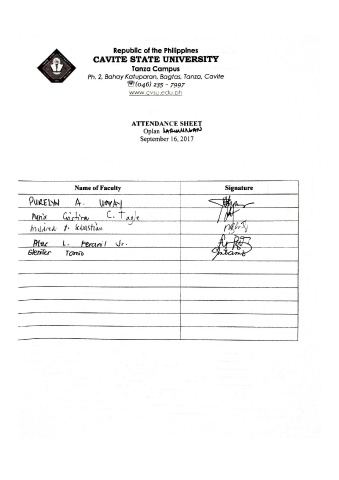 Republic of the Philippines
CAVITE STATE UNIVERSITY
Tanza Campus
Ph. 2, Bahay Katuparan, Bagtas, Tanza, Cavite
☎(046) 235 – 7997
www.cvsu.edu.ph
ATTENDANCE SHEET
Oplan
September 16, 2017
Name of Faculty Signature
PURELYN A.
Cristina C. Tagle
Mildred Sebastian
L. Peranil Jr.
Glenifer Tamio